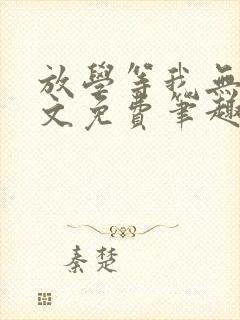 放學等我無
文免費筆趣
秦楚